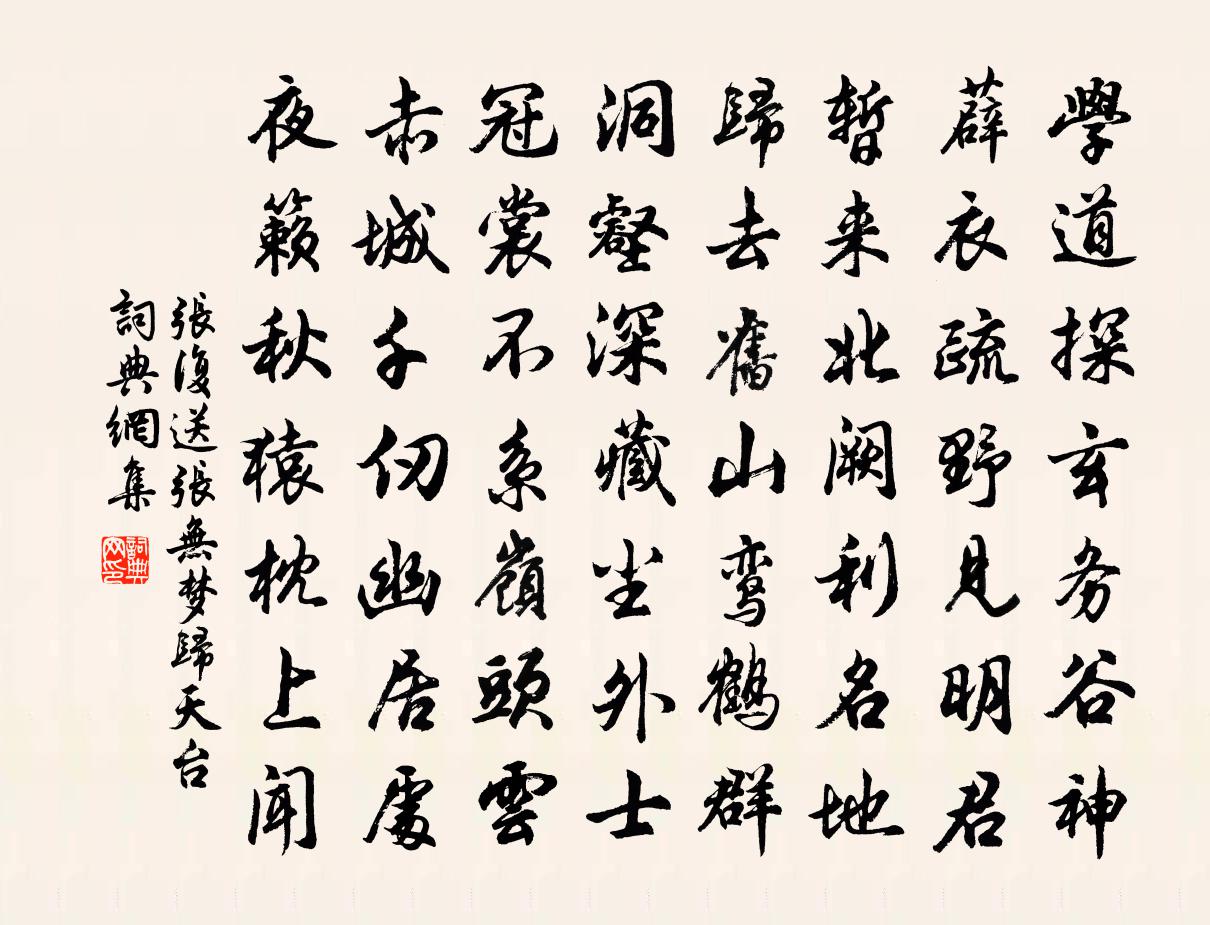 學道探玄务谷神
薜衣疏野見明君
暫来北阙利名地
歸去舊山鸾鶴群
洞壑深藏尘外士
冠裳不系嶺頭雲
赤城千仞幽居處
夜籁秋猿枕上闻
張復送張無梦歸天台
詞典網集
詞典网印